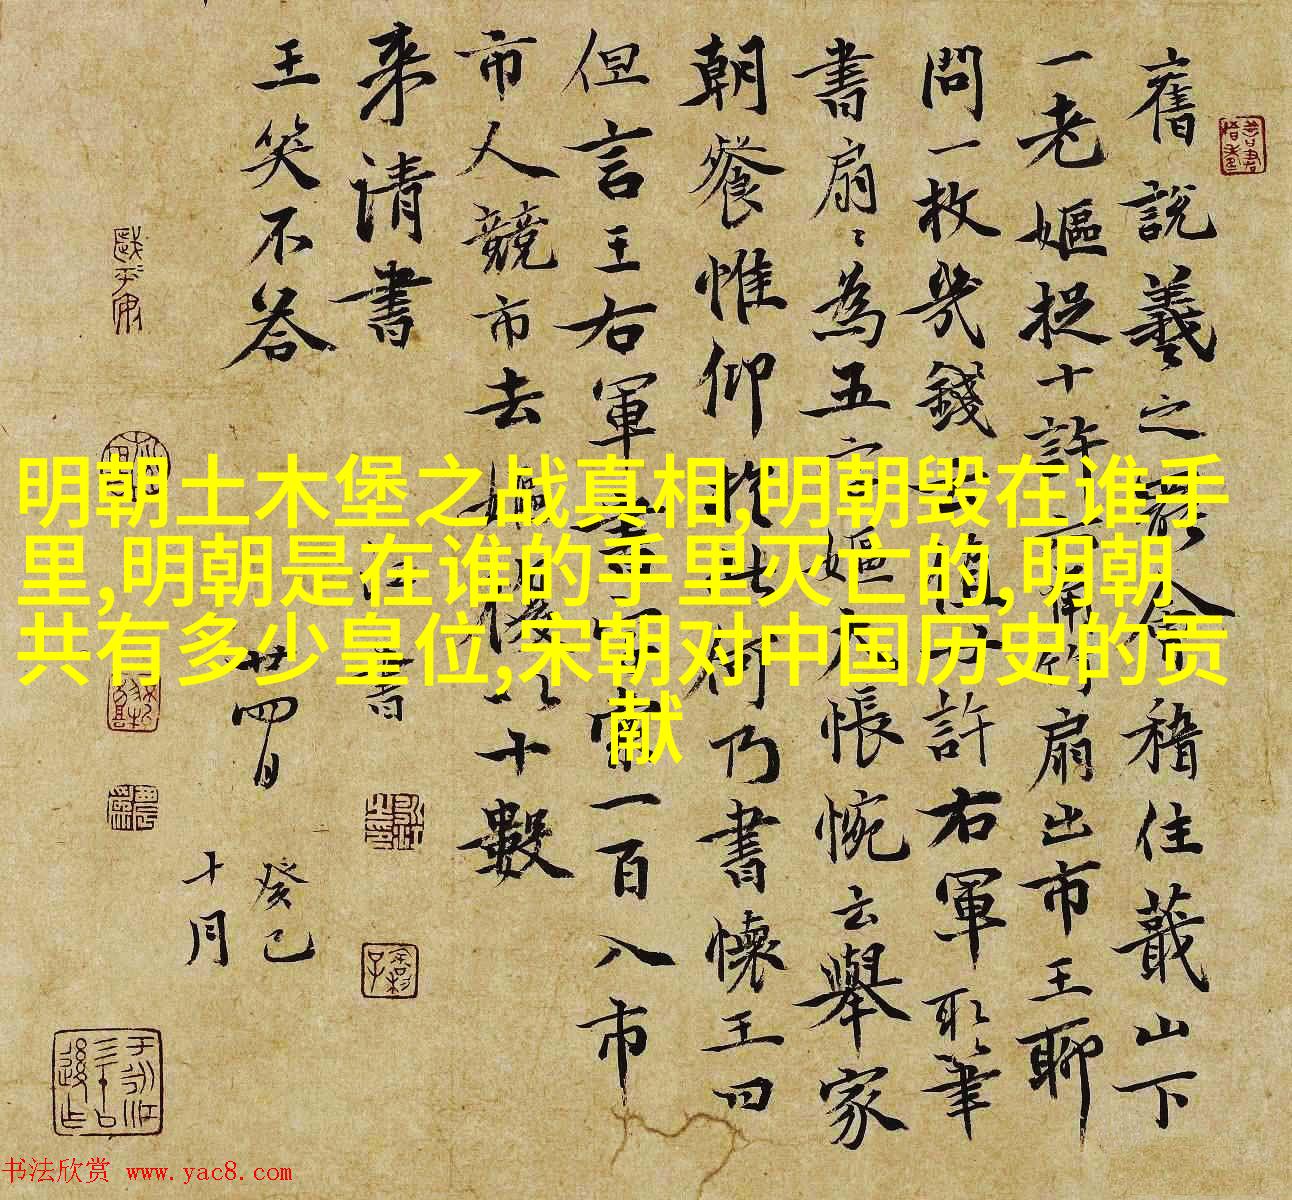 舊說羲之罷會稽住蕺山下
一老嫗捉十許六角竹扇出市王聊
問一枚幾錢云值廿許右軍取筆
書扇扇為五字嫗大悵惋云舉家
朝餐惟仰於此何乃書壞王曰
但言王右軍書字索一百入市
市人競市去嫗復以十數
来請書
王笑不答
廿四日
癸巳
十月
明朝土木堡之战真相,明朝毁在谁手
里,明朝是在谁的手里灭亡的,明朝
共有多少皇位,宋朝对中国历史的贡
献
书法欣赏 www.yac8.com